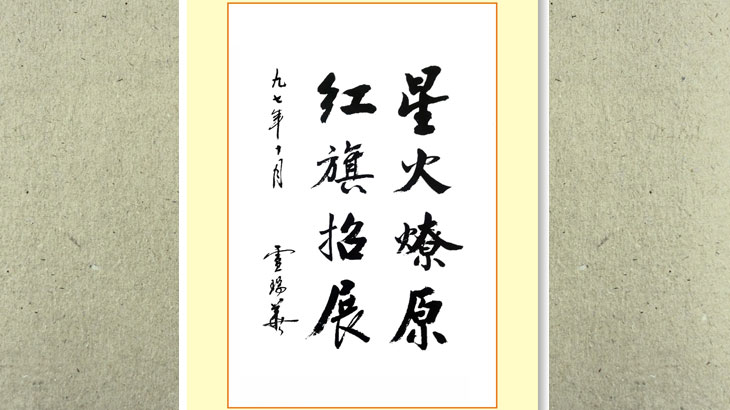 星火燎原
红旗招展
九七年十月